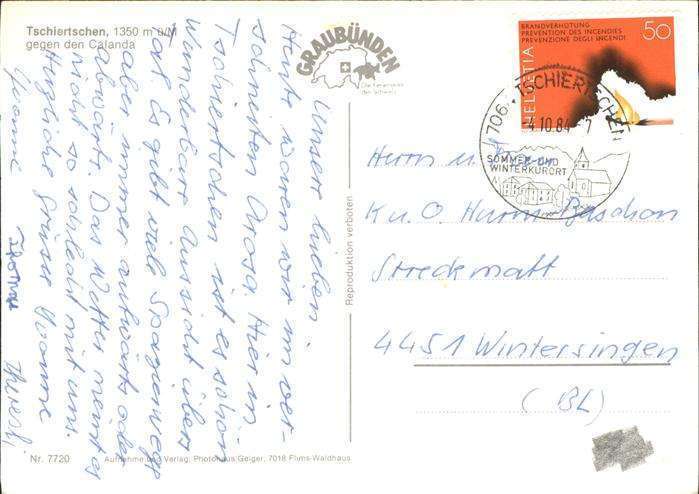 Tschiertschen, 1350 m ü/M
gegen den Calanda
GRAUBÜNDEN
Die Ferienecke
der Schweiz
Unsere Lieben.
Heute waren wir im ver-
schneiten Arosa. Hier in
Tschiertschen ist es schön
Wunderbare Aussicht übers
Tal. Es gibt viele Spazierwege
aber immer aufwärts oder
abwärts. Das Wetter meint es
nicht so schlecht mit uns.
Herzliche Grüsse Yvonne
Yvonne Thomas
BRANDVERHÜTUNG
PREVENTION DES INCENDIES
PREVENZIONE DEGLI INCENDI
50
HELVETIA
706 TSCHIERTSCHEN
4.10.84-7
SOMMER-UND
WINTERKURORT
Herrn u.
K u. O
Streckmatt
4451 Wintersingen
(BL)
Reproduktion verboten
Nr. 7720 Aufnahme und Verlag, Photohaus Geiger, 7018 Flims-Waldhaus